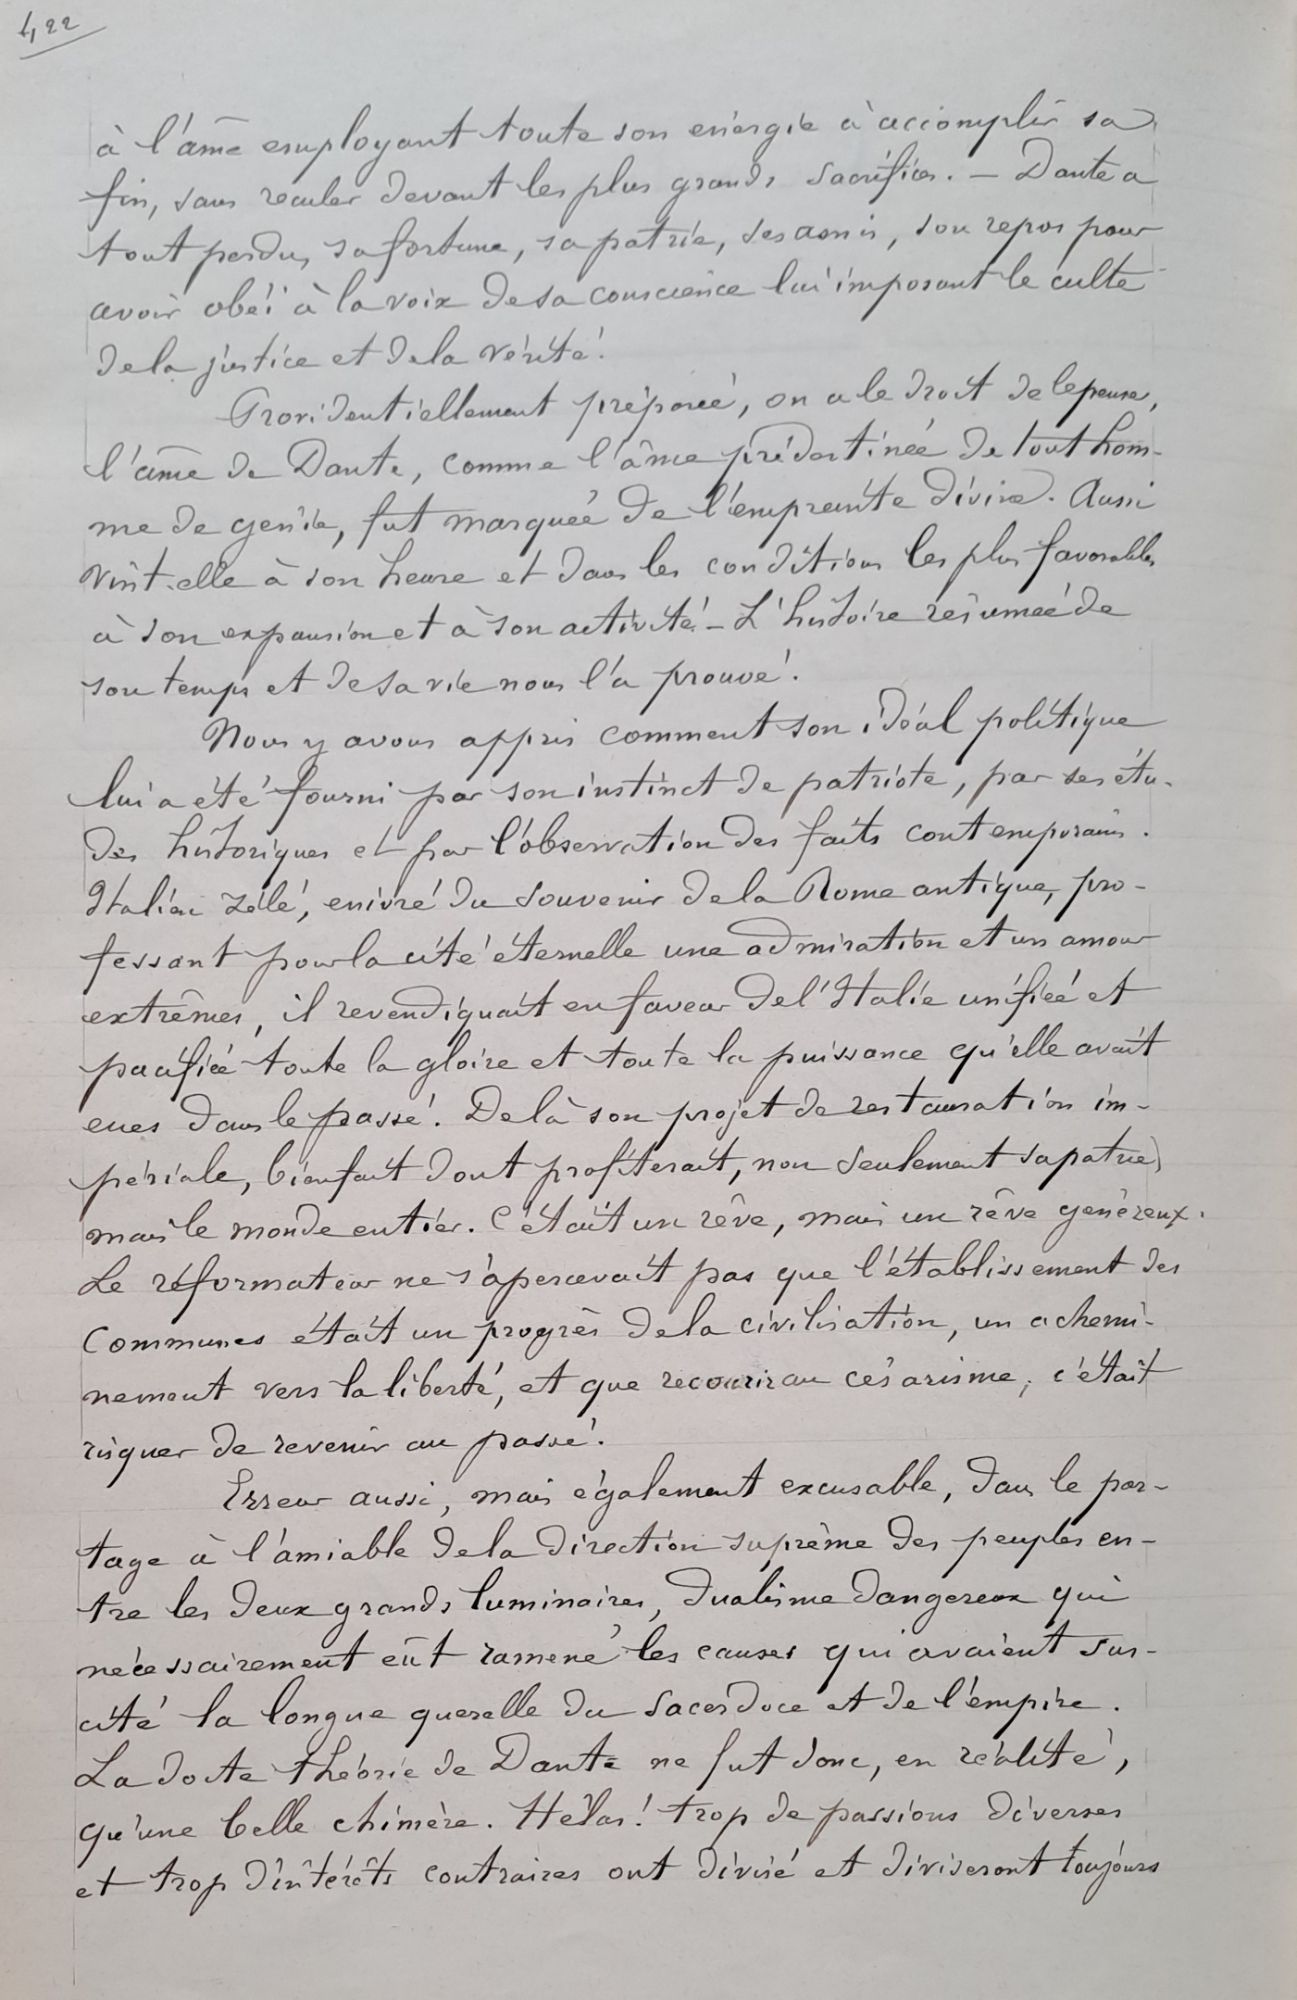 422
à l'âme employant toute son énergie à accomplir sa
fin, sans reculer devant les plus grands sacrifices. — Dante a
tout perdu, sa fortune, sa patrie, ses amis, son repos pour
avoir obéi à la voix de sa conscience lui imposant le culte
de la justice et de la vérité.
Providentiellement préparée, on a le droit de le penser,
l'âme de Dante, comme l'âme prédestinée de tout hom-
me de génie, fut marquée de l'empreinte divine. Aussi
vint-elle à son heure et dans les conditions les plus favorables
à son expansion et à son activité. — L'histoire résumée de
son temps et de sa vie nous l'a prouvé.
Nous y avons appris comment son idéal politique
lui a été fourni par son instinct de patriote, par ses étu-
des historiques et par l'observation des faits contemporains.
Italien zélé, enivré du souvenir de la Rome antique, pro-
fessant pour la cité éternelle une admiration et un amour
extrêmes, il revendiquait en faveur de l'Italie unifiée et
pacifiée toute la gloire et toute la puissance qu'elle avait
eues dans le passé. De là son projet de restauration im-
périale, bienfait dont profiterait, non seulement sa patrie,
mais le monde entier. C'était un rêve, mais un rêve généreux.
Le réformateur ne s'apercevait pas que l'établissement des
Communes était un progrès de la civilisation, un achemi-
nement vers la liberté, et que recourir au césarisme, c'était
risquer de revenir au passé.
Erreur aussi, mais également excusable, dans le par-
tage à l'amiable de la direction suprême des peuples en-
tre les deux grands luminaires, dualisme dangereux qui
nécessairement eût ramené les causes qui avaient sus-
cité la longue querelle du sacerdoce et de l'empire.
La docte théorie de Dante ne fut donc, en réalité,
qu'une belle chimère. Hélas! trop de passions diverses
et trop d'intérêts contraires ont divisé et diviseront toujours